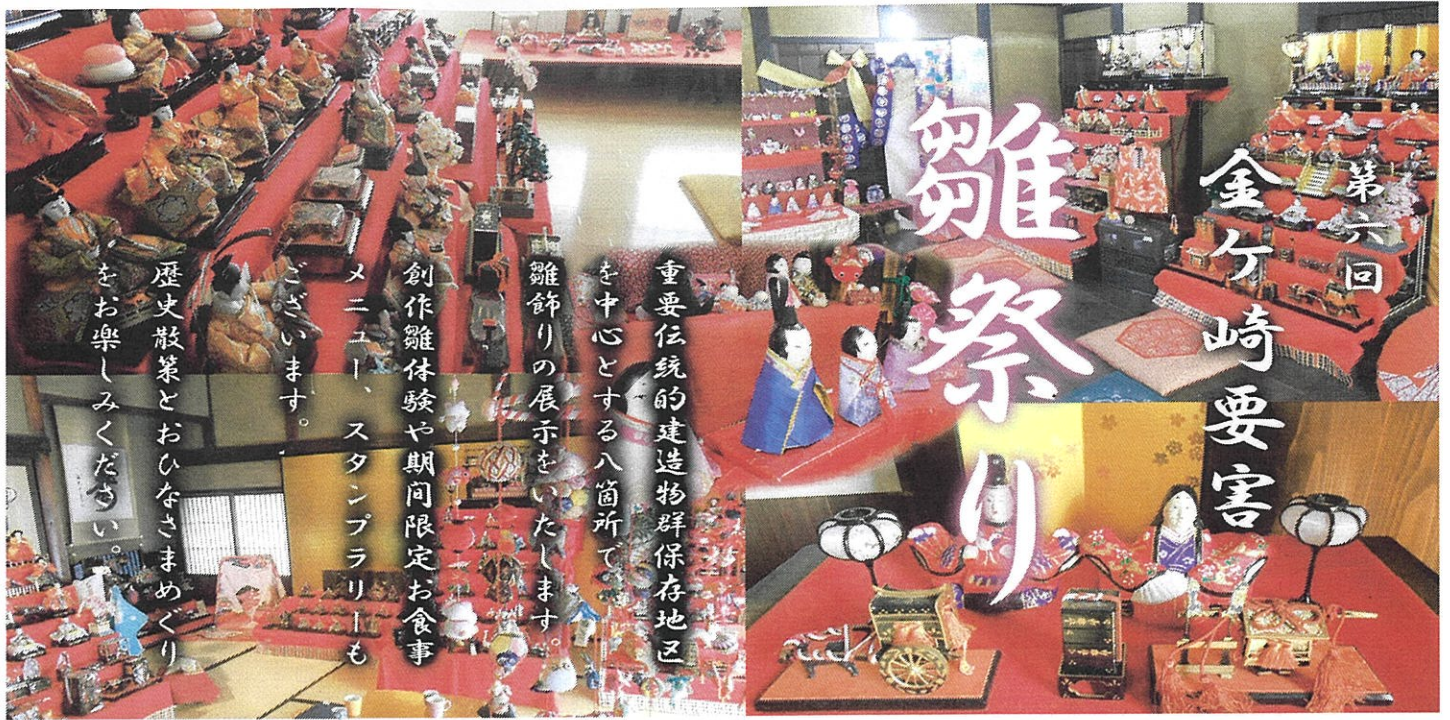 第六回
金ケ崎要害
雛祭り
重要伝統的建造物群保存地区
を中心とする八箇所で、
雛飾りの展示をいたします。
創作雛体験や期間限定お食事
メニュー、スタンプラリーも
ございます。
歴史散策とおひなさまめぐり
をお楽しみください。